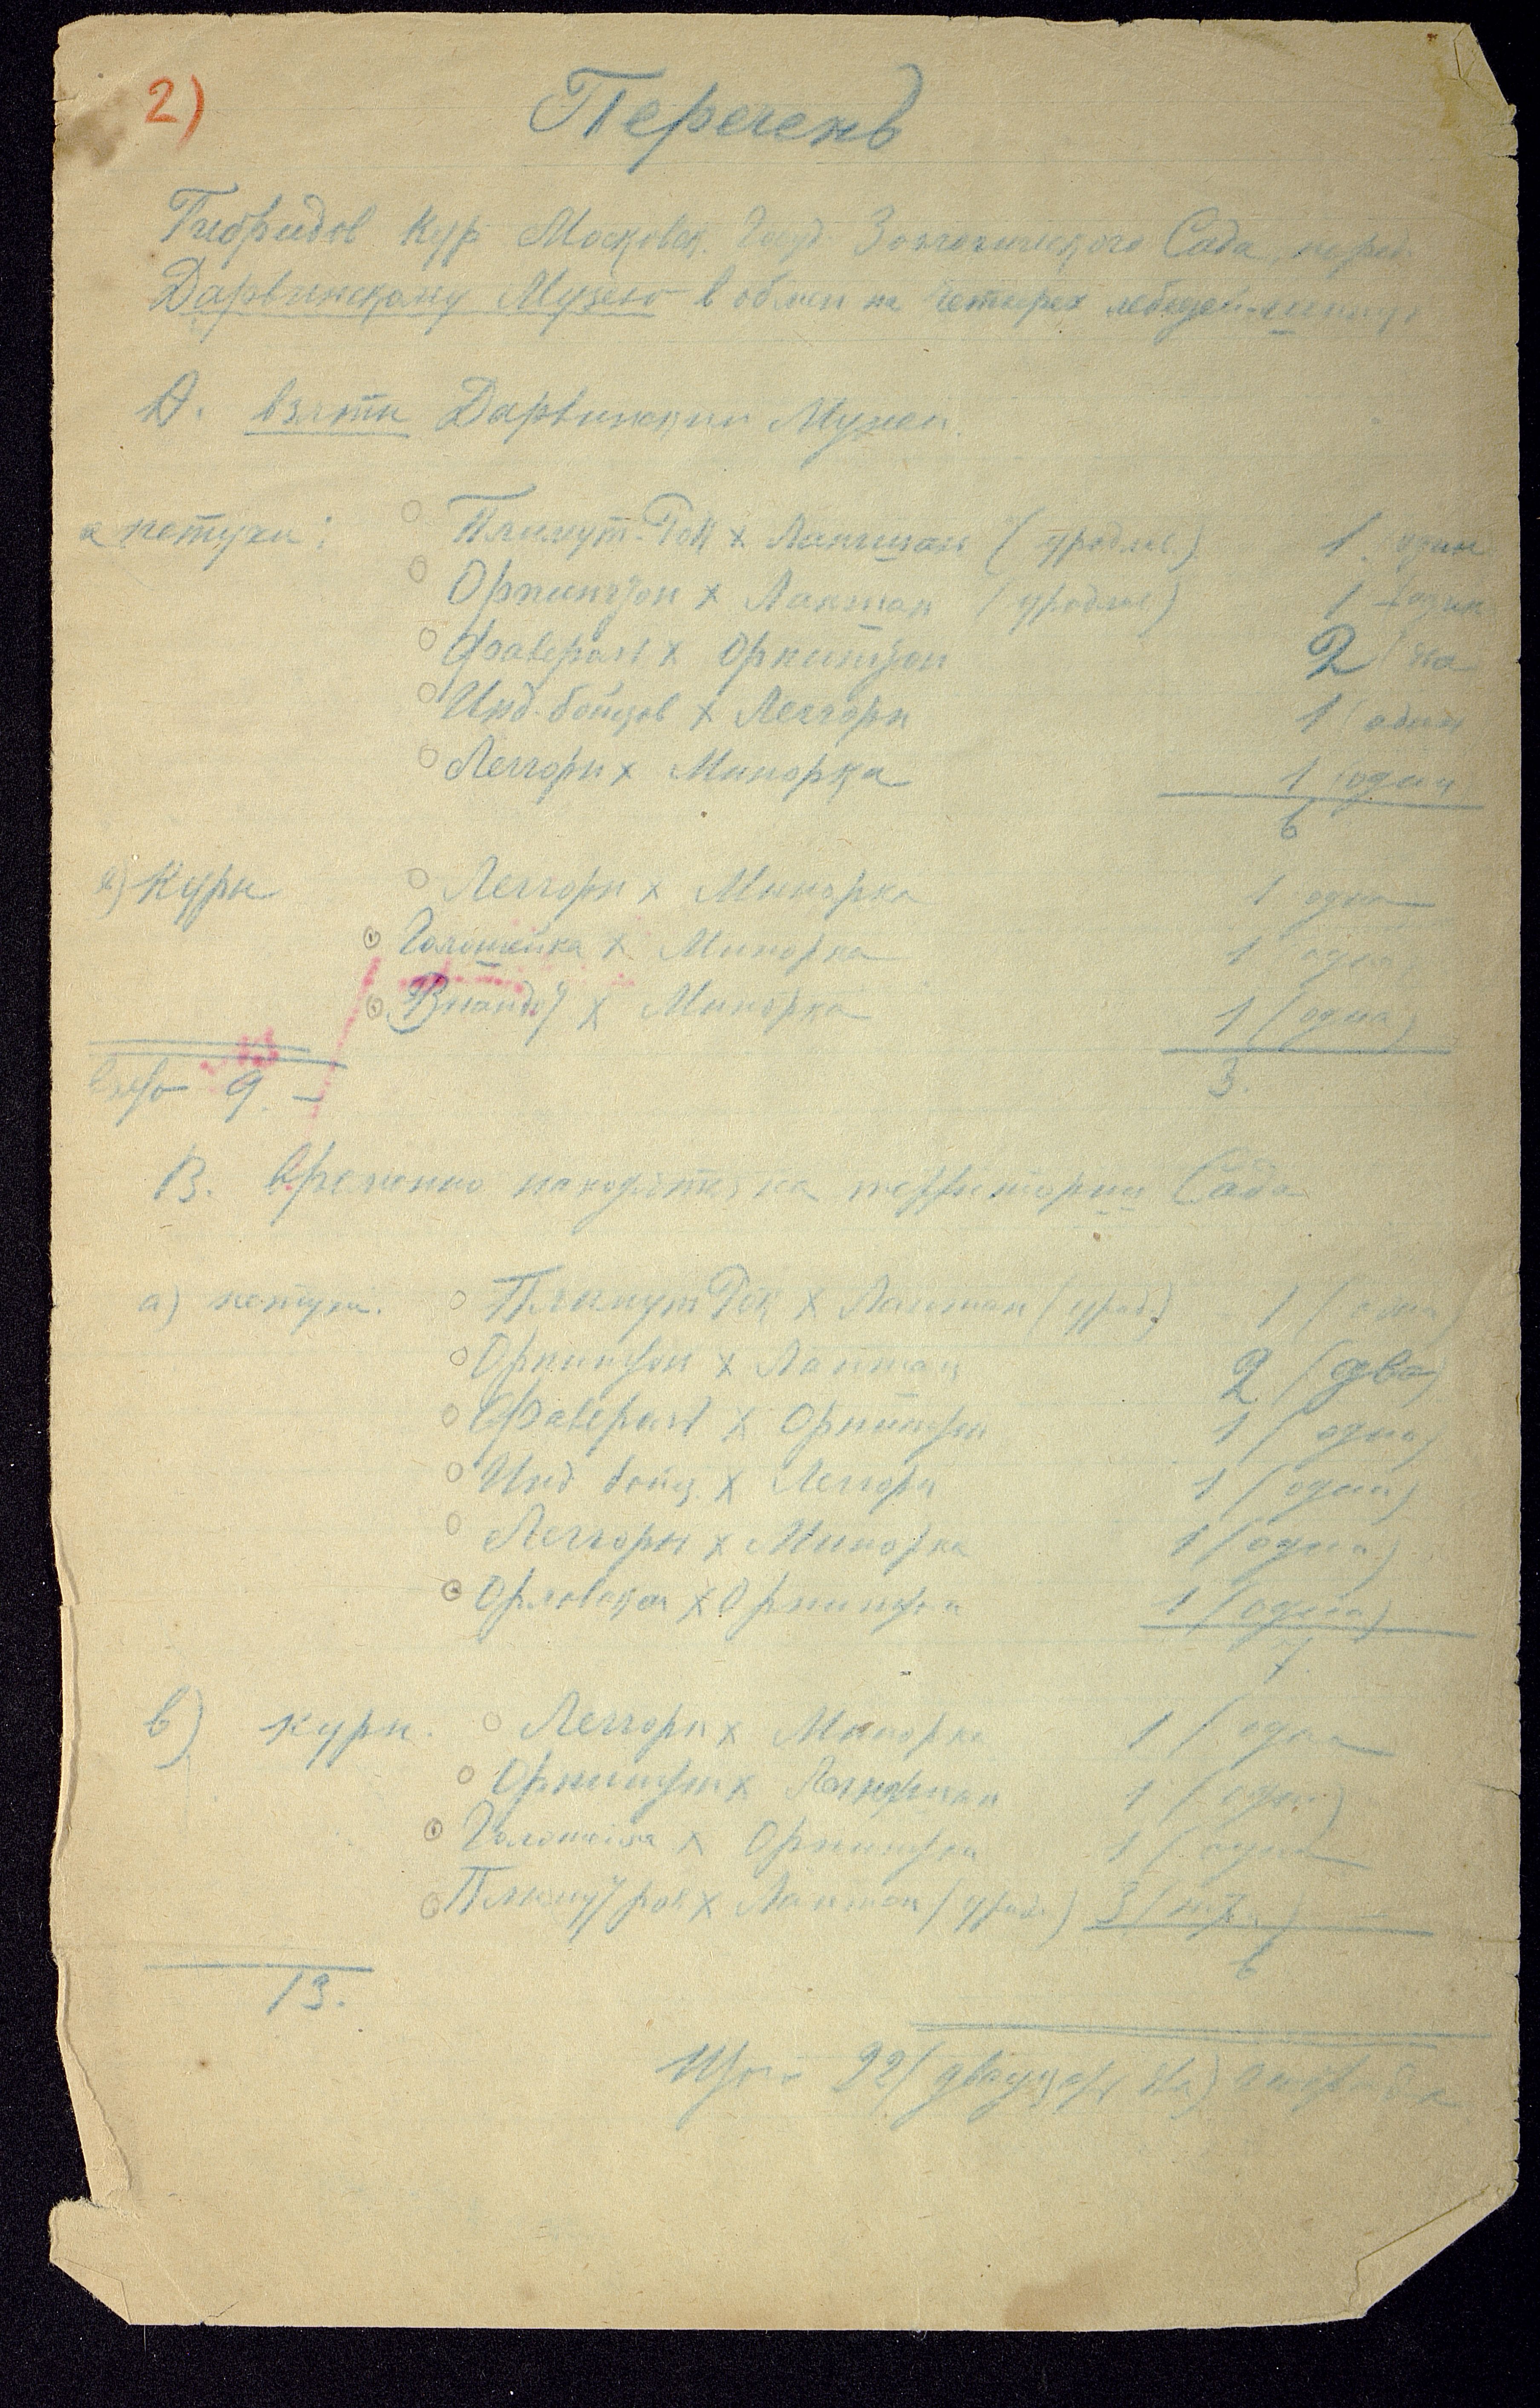 2)
Перечень
Гибридов Кур Московск. Госуд. Зоологического Сада, перед.
Дарвинскому Музею в обмен на четырех лебедей-шипунов
А. взяты Дарвинским Музеем.
а петухи: Плимут-Рок х Лангшан (уродлив.) 1 (один
Орпингтон х Лангшан (уродлив) 1 (один
Фавероль х Орпингтон 2 (два
Инд. бойцов х Леггорн 1 (один
Леггорн х Минорка 1 (один
6
в) Куры Леггорн х Минорка 1 одна
Голошейка х Минорка 1 (одна)
Виандот х Минорка 1 (одна)
3.
всего 9. –
В. временно находятся на территории Сада
а) петухи. Плимут Рок х Лангшан (урод.) 1 (один)
Орпингтон х Лангшан 2 (два)
Фавероль х Орпингтон 1 (один)
Инд. бойц. х Леггорн 1 (один)
Леггорн х Минорка 1 (один)
Орловская х Орпингтон 1 (один)
7.
в) куры. Леггорн х Минорка 1 (одна
Орпингтон х Лангшан 1 (одна)
Голошейка х Орпингтон 1 (одна
Плимутрок х Лангшан (урод.) 3 (три)
6
13.
Итого 22 (двадцать два) гибрида